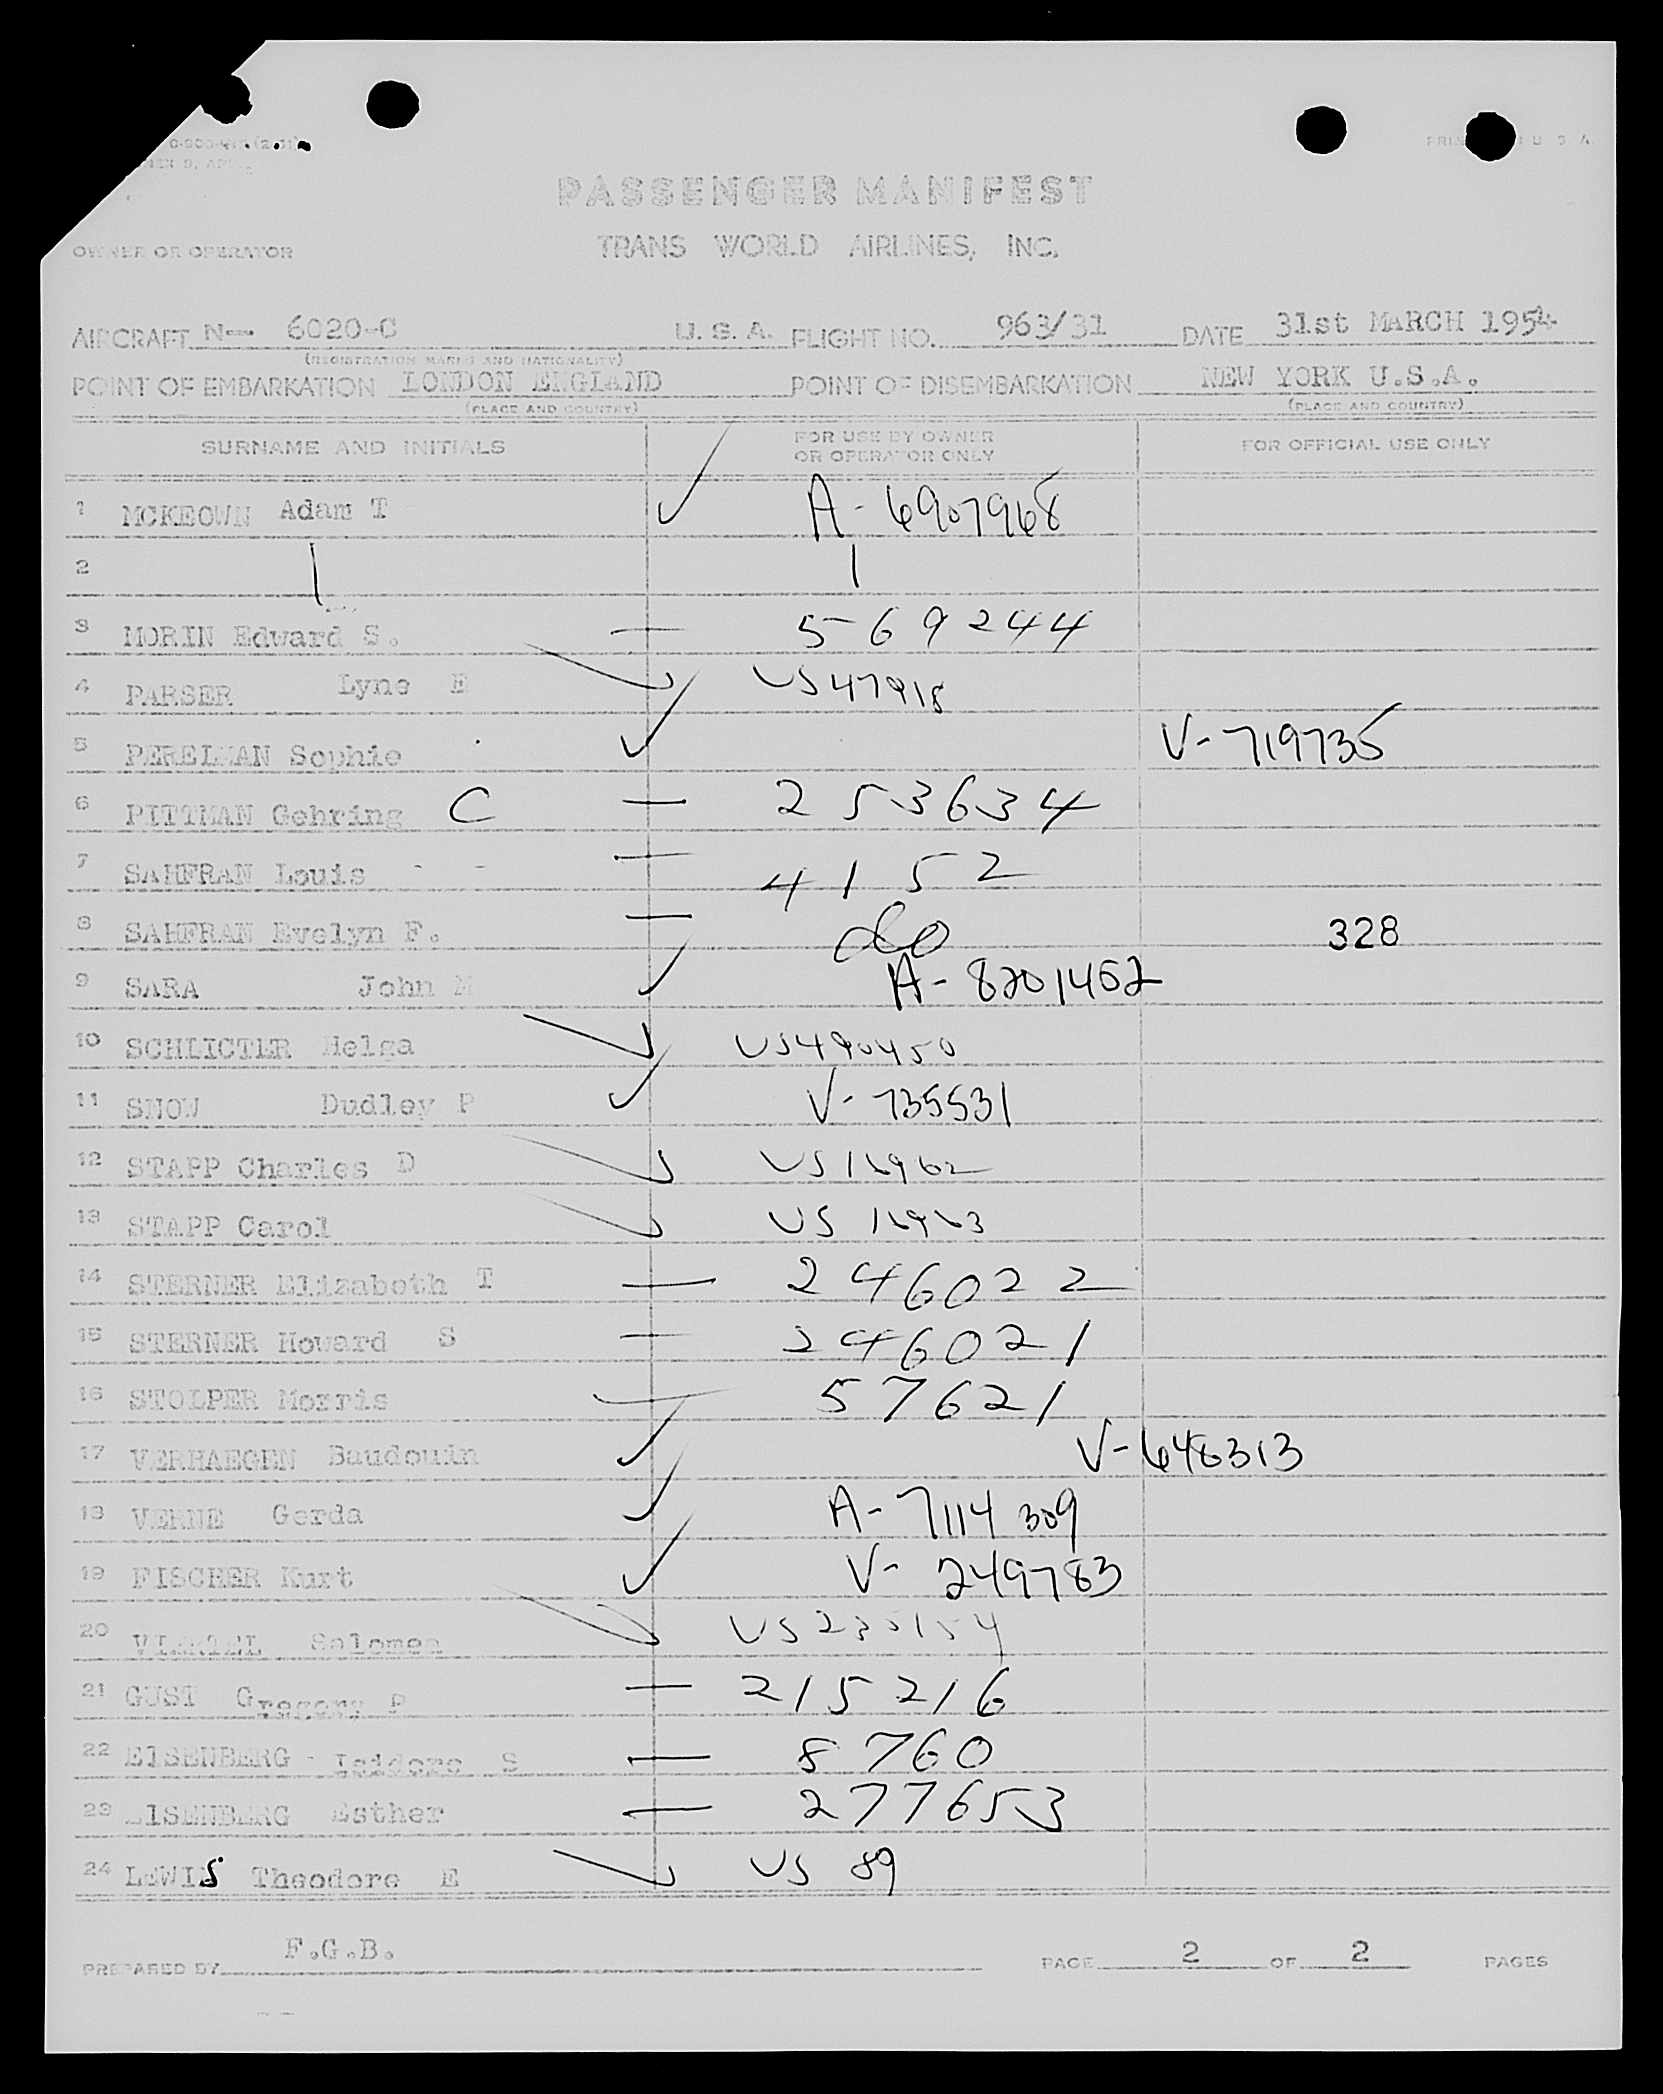 PASSENGER MANIFEST
OWNER OR OPERATOR TRANS WORLD AIRLINES, INC.
AIRCRAFT N-- 6020-C U.S.A. FLIGHT NO. 963/31 DATE 31st MARCH 1954
(REGISTRATION MARKS AND NATIONALITY)
POINT OF EMBARKATION LONDON ENGLAND POINT OF DISEMBARKATION NEW YORK U.S.A.
(PLACE AND COUNTRY) (PLACE AND COUNTRY)
SURNAME AND INITIALS FOR USE BY OWNER OR OPERATOR ONLY FOR OFFICIAL USE ONLY
1 MCKEOWN Adam T A-6907968
2
3 MORIN Edward S. 569244
4 PARSER Lyne E US47918
5 PERELMAN Sophie V-719735
6 PITTMAN Gehring C 253634
7 SAHFRAN Louis 4152
8 SAHFRAN Evelyn F. do 328
9 SARA John M A-8201452
10 SCHLICTER Helga US490450
11 SNOW Dudley P V-735531
12 STAPP Charles D US16962
13 STAPP Carol US 16963
14 STERNER Elizabeth T 246022
15 STERNER Howard S 246021
16 STOLPER Morris 57621
17 VERHAEGEN Baudouin V-648313
18 VERNE Gerda A-7114309
19 FISCHER Kurt V-249783
20 Salomea US235154
21 GUST Gregory P 215216
22 EISENBERG Isidore S 8760
23 EISENBERG Esther 277653
24 LEWIS Theodore E US 89
PREPARED BY F.G.B. PAGE 2 OF 2 PAGES